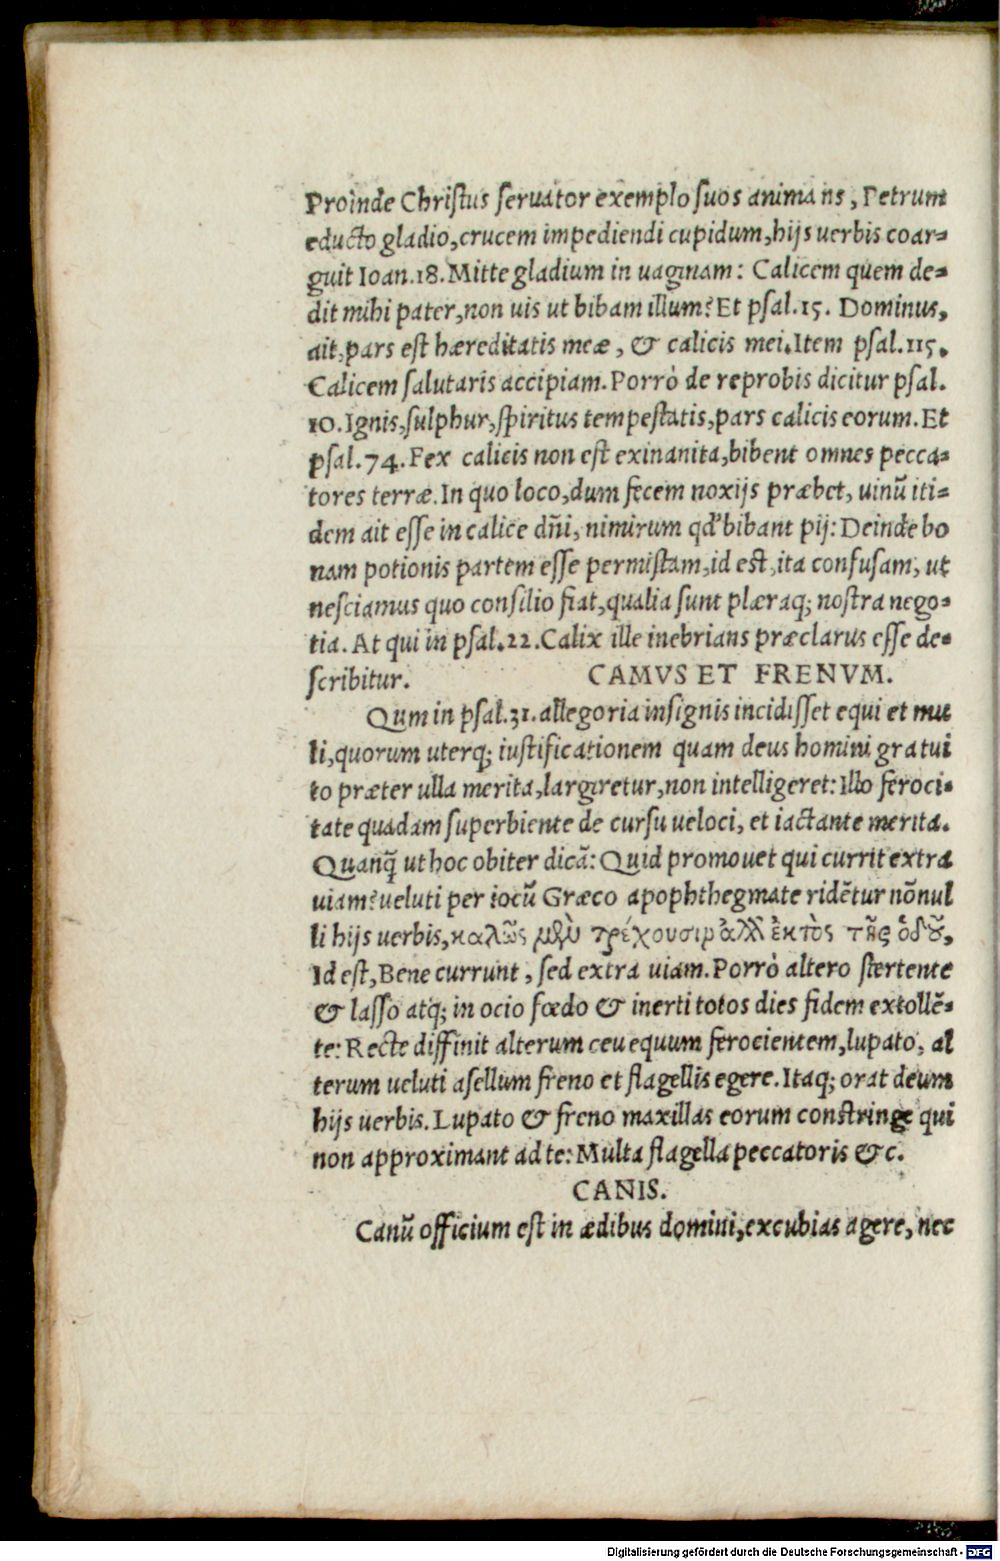 Proinde Christus seruator exemplo suos animans, Petrum
educto gladio, crucem impediendi cupidum, hijs uerbis coar-
guit Ioan. 18. Mitte gladium in uaginam: Calicem quem de-
dit mihi pater, non uis ut bibam illum? Et psal. 15. Dominus,
ait, pars est hæreditatis meæ, & calicis mei. Item psal. 115.
Calicem salutaris accipiam. Porrò de reprobis dicitur psal.
10. Ignis, sulphur, spiritus tempestatis, pars calicis eorum. Et
psal. 74. Fex calicis non est exinanita, bibent omnes pecca-
tores terræ. In quo loco, dum fecem noxijs præbet, uinũ iti-
dem ait esse in calice dñi, nimirum qd' bibant pij: Deinde bo
nam potionis partem esse permistam, id est, ita confusam, ut
nesciamus quo consilio fiat, qualia sunt plæraq; nostra nego-
tia. At qui in psal. 22. Calix ille inebrians præclarus esse de-
scribitur. CAMVS ET FRENVM.
Qum in psal. 31. allegoria insignis incidisset equi et mu
li, quorum uterq; iustificationem quam deus homini gratui
to præter ulla merita, largiretur, non intelligeret: Illo feroci-
tate quadam superbiente de cursu ueloci, et iactante merita.
Quanq̃ ut hoc obiter dicã: Quid promouet qui currit extra
uiam? ueluti per iocũ Græco apophthegmate ridẽtur nõnul
li hijs uerbis, καλῶς μὲν τρέχουσιμ ἀλλ' ἐκτὸς τῆς ὁδοῦ,
Id est, Bene currunt, sed extra uiam. Porrò altero stertente
& lasso atq; in ocio fœdo & inerti totos dies fidem extollẽ-
te: Recte diffinit alterum ceu equum ferocientem, lupato, al
terum ueluti asellum freno et flagellis egere. Itaq; orat deum
hijs uerbis. Lupato & freno maxillas eorum constringe qui
non approximant ad te: Multa flagella peccatoris &c.
CANIS.
Canũ officium est in ædibus domini, excubias agere, nec
Digitalisierung gefördert durch die Deutsche Forschungsgemeinschaft - DFG